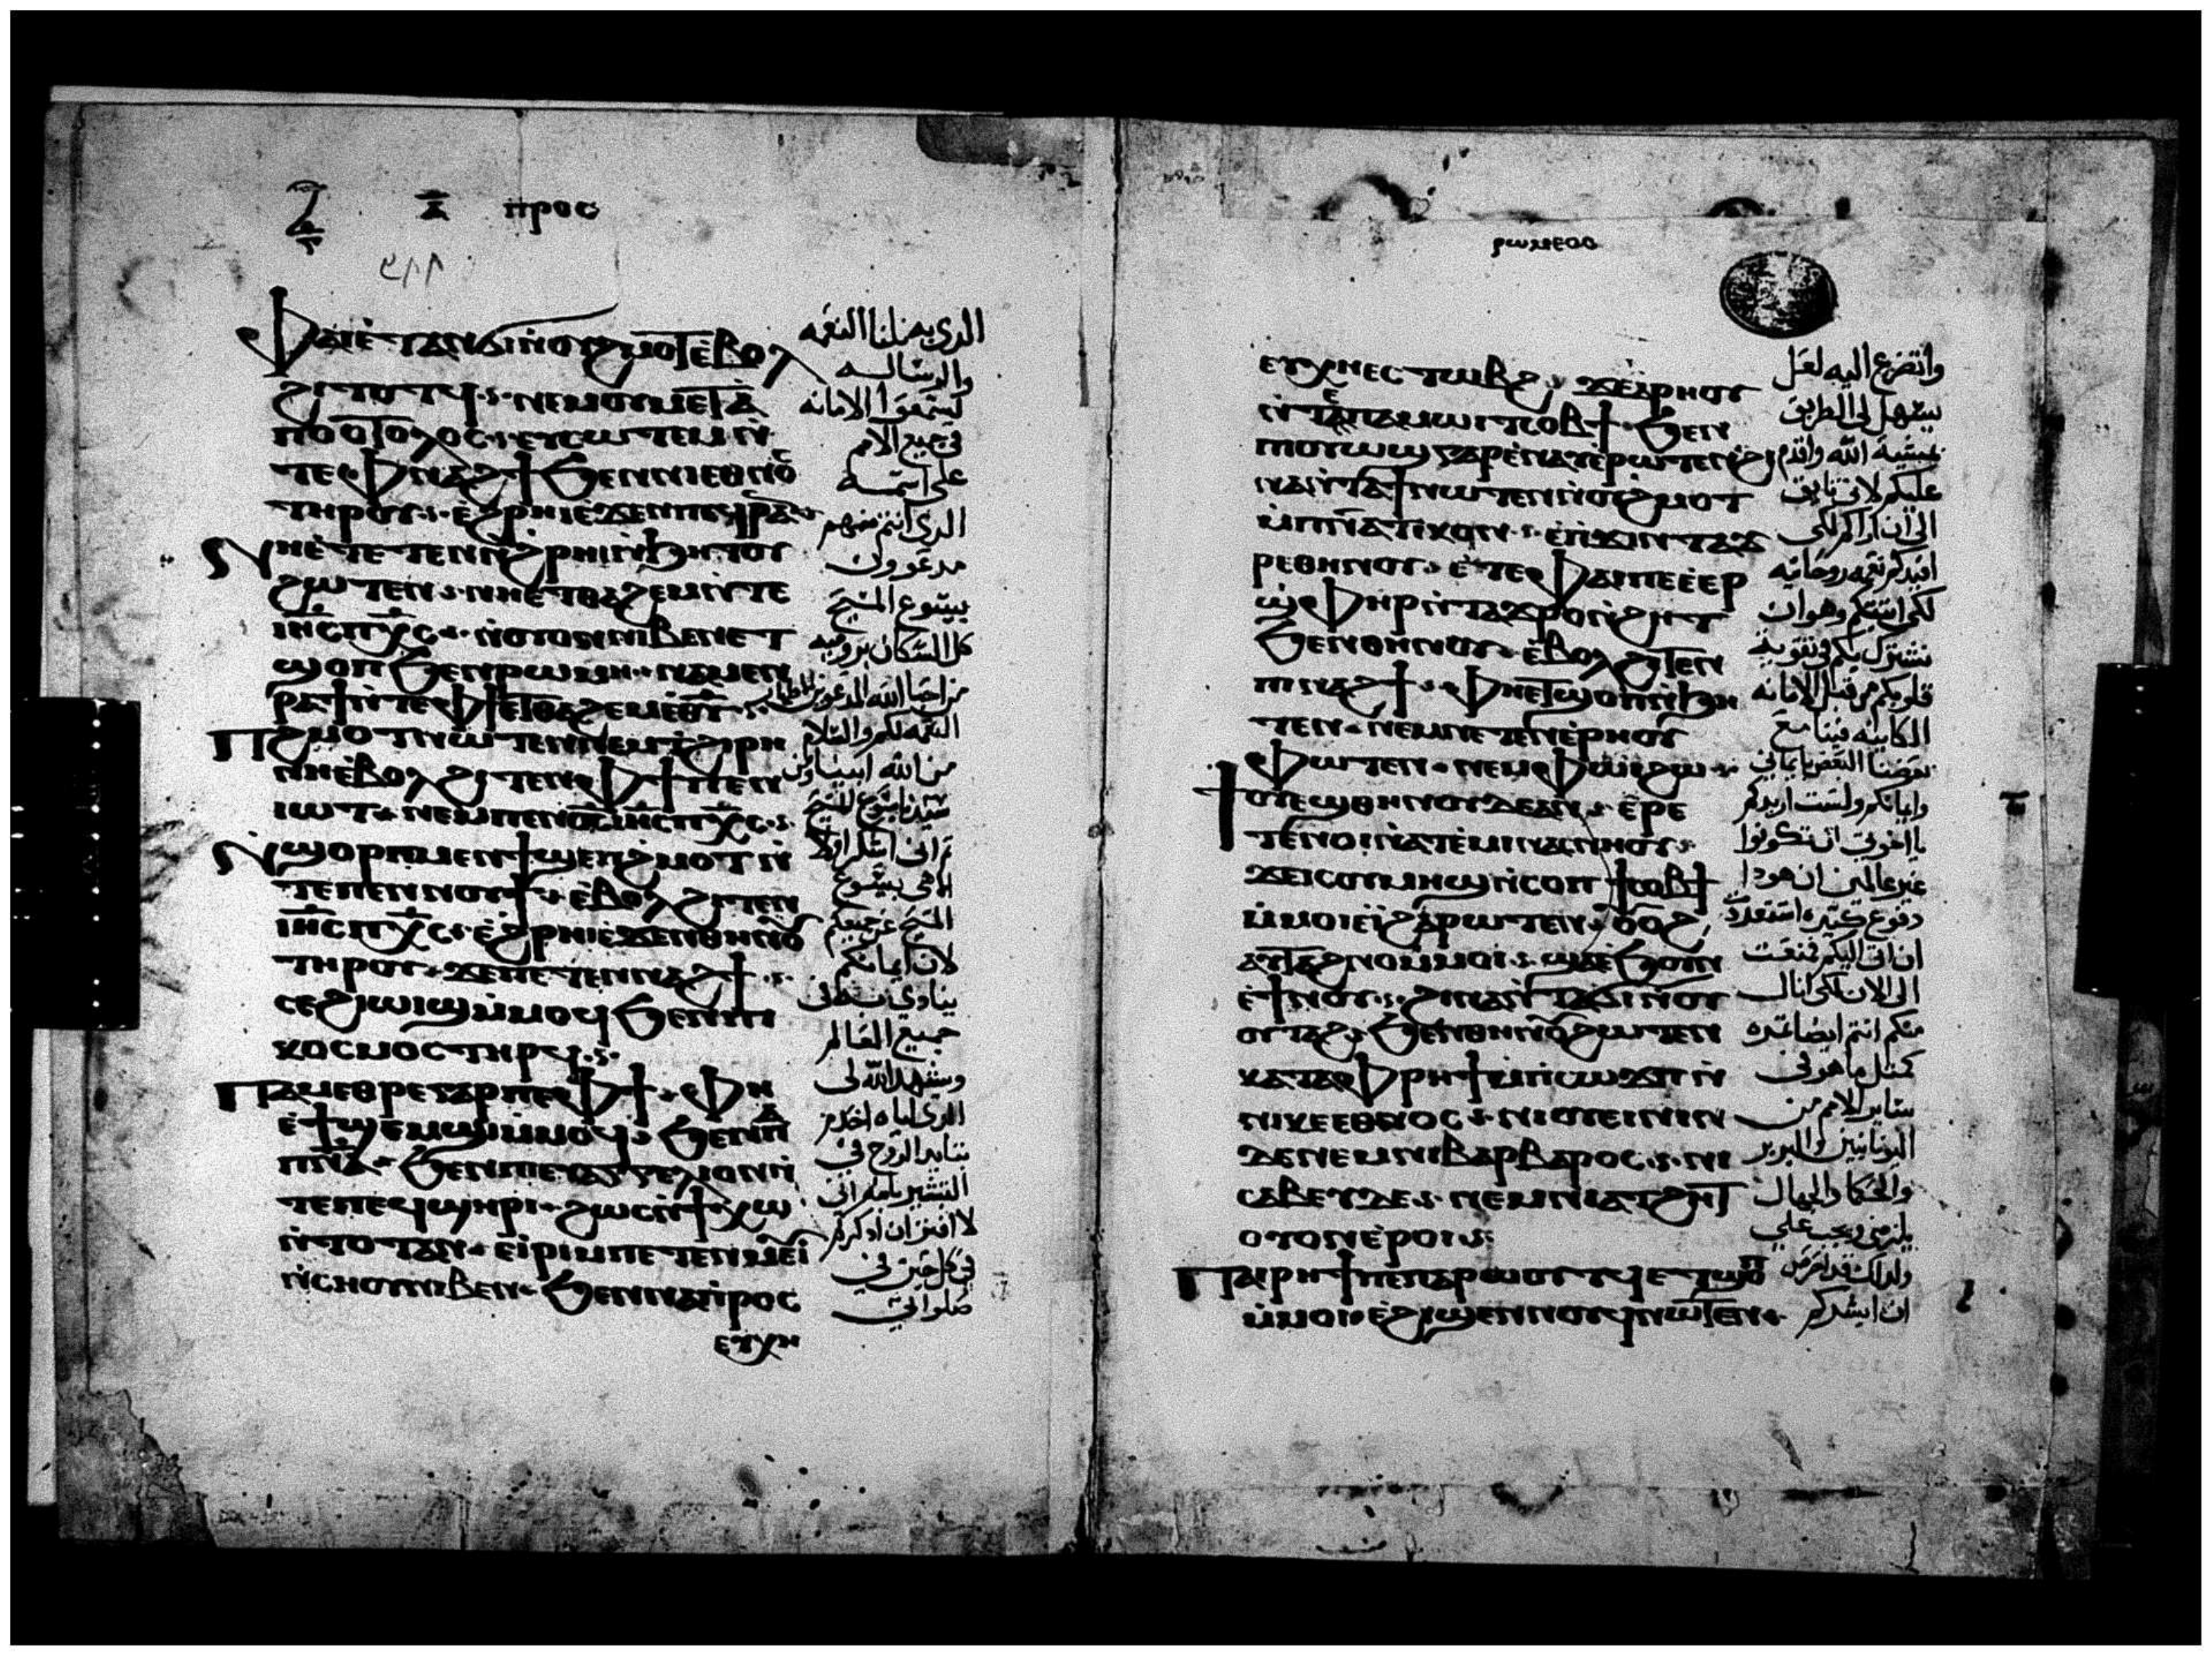 ⲁ̅ ⲡⲣⲟⲥ
ⲫⲁⲓ ⲉ̀ⲧⲁⲛϭⲓ ⲛ̀ⲟⲩϩⲙⲟⲧ ⲉ̀ⲃⲟⲗ
ϩⲓⲧⲟⲧϥ ⲛⲉⲙ ⲟⲩⲙⲉⲧⲁ̀
ⲡⲟⲥⲧⲟⲗⲟⲥ ⲉⲩⲥⲱⲧⲉⲙ ⲛ̀
ⲧⲉ ⲫⲛⲁϩϯ ϧⲉⲛ ⲛⲓⲉⲑⲛⲟⲥ
ⲧⲏⲣⲟⲩ ⲉ̀ϩⲣⲏⲓ ⲉϫⲉⲛ ⲡⲉϥⲣⲁⲛ
ⲛⲏ ⲉ̀ⲧⲉⲧⲉⲛⲛ̀ϩⲣⲏⲓ ⲛ̀ϧⲏⲧⲟⲩ
ϩⲱⲧⲉⲛ ⲛⲏⲉⲧⲑⲁϩⲉⲙ ⲛ̀ⲧⲉ
ⲓⲏ̅ⲥ ⲡⲭ̅ⲥ ⲛ̀ⲟⲩⲟⲛ ⲛⲓⲃⲉⲛ ⲉⲧ
ϣⲟⲡ ϧⲉⲛ ⲣⲱⲙⲏ ⲛⲁⲙⲉⲛ
ⲣⲁϯ ⲛ̀ⲧⲉ ⲫϯ ⲉⲧⲑⲁϩⲉⲙ ⲉⲑⲩ
ⲡϩⲙⲟⲧ ⲛⲱⲧⲉⲛ ⲛⲉⲙ ⲧϩⲓⲣⲏ
ⲛⲏ ⲉ̀ⲃⲟⲗ ϩⲓⲧⲉⲛ ⲫϯ ⲡⲉⲛ
ⲓⲱⲧ ⲛⲉⲙ ⲡⲉⲛⲟ̅ⲥ̅ ⲓⲏ̅ⲥ ⲡⲭ̅ⲥ
ⲛ̀ϣⲟⲣⲡ ⲙⲉⲛ ϯϣⲉⲡϩⲙⲟⲧ ⲛ̀
ⲧⲉ ⲡⲉⲛⲛⲟⲩϯ ⲉ̀ⲃⲟⲗ ϩⲓⲧⲉⲛ
ⲓⲏ̅ⲥ ⲡⲭ̅ⲥ ⲉ̀ϩⲣⲏⲓ ⲉϫⲉⲛ ⲑⲏⲛⲟⲩ
ⲧⲏⲣⲟⲩ ϫⲉ ⲡⲉⲧⲉⲛⲛⲁϩϯ
ⲥⲉϩⲓⲱⲓϣ ⲙ̀ⲙⲟϥ ϧⲉⲛ ⲡⲓ
ⲕⲟⲥⲙⲟⲥ ⲧⲏⲣϥ
ⲡⲁⲙⲉⲑⲣⲉ ⲅⲁⲣ ⲡⲉ ⲫϯ ⲫⲏ
ⲉ̀ϯϣⲉⲙϣⲓ ⲙ̀ⲙⲟϥ ϧⲉⲛ ⲡⲁ
ⲡⲛ̅ⲁ̅ ϧⲉⲛ ⲡⲓⲉⲩⲁⲅⲅⲉⲗⲓⲟⲛ ⲛ̀
ⲧⲉ ⲡⲉϥϣⲏⲣⲓ ϩⲱⲥ ⲛ̀ϯⲭⲱ
ⲛ̀ⲧⲟⲧ ⲁⲛ ⲉⲓⲣⲓ ⲙ̀ⲡⲉⲧⲉⲛⲙⲉⲩⲓ
ⲛ̀ⲥⲏⲟⲩ ⲛⲓⲃⲉⲛ ϧⲉⲛ ⲛⲁⲡⲣⲟⲥ
ⲉⲩⲭⲏ
الذي به نلنا النعمه
والرساله
ليسمعوا الامانه
في جميع الامم
على اسمه
الذي انتم منهم
مدعوون
بيسوع المسيح
كل السكان بروميه
من احبا الله المدعوين الاطهار
النعمه لكم والسلام
من الله ابينا ومن
سيدنا يسوع المسيح
ثم اني اشكر اولا
الاهي بيسوع
المسيح عن جميعكم
لان ايمانكم
ينادي به في
جميع العالم
ويشهد الله لي
الذي اياه اخدم
بتاييد الروح في
التبشير بابنه اني
لا افتر ان اذكركم
في كل حين في
صلواتي
ⲣⲱⲙⲉⲟⲥ
ⲉⲩⲭⲏ ⲉⲥⲧⲱⲃϩ ϫⲉ ⲁⲣⲏⲟⲩ
ⲛ̀ⲧⲉ ⲡⲁⲙⲱⲓⲧ ⲥⲟⲃϯ ϧⲉⲛ
ⲡⲟⲩⲱϣ ⲅⲁⲣ ⲉ̀ⲛⲁⲩ ⲉ̀ⲣⲱⲧⲉⲛ ϩⲓ
ⲛⲁ ⲛ̀ⲧⲁϯ ⲛⲱⲧⲉⲛ ⲛ̀ⲟⲩϩⲙⲟⲧ
ⲙ̀ⲡⲛ̅ⲁ̅ⲧⲓⲕⲟⲛ ⲉ̀ⲡϫⲓⲛⲧⲁϫ
ⲣⲉ ⲑⲏⲛⲟⲩ ⲉ̀ⲧⲉ ⲫⲁⲓ ⲡⲉ ⲉ̀ⲉⲣ
ϣ̀ⲫⲏⲣ ⲛ̀ⲧⲁϫⲣⲟ ⲛ̀ϩⲏⲧ
ϧⲉⲛ ⲑⲏⲛⲟⲩ ⲉ̀ⲃⲟⲗ ϩⲓⲧⲉⲛ
ⲡⲛⲁϩϯ ⲫⲏⲉⲧϣⲟⲡ ⲛ̀ϧⲏ
ⲧⲉⲛ ⲛⲉⲙ ⲛⲉⲧⲉⲛⲉ̀ⲣⲏⲟⲩ
ⲫⲱⲧⲉⲛ ⲛⲉⲙ ⲫⲱⲓ ϩⲱ
ϯⲟⲩⲉϣ ⲑⲏⲛⲟⲩ ⲇⲉ ⲁⲛ ⲉ̀ⲣⲉ
ⲧⲉⲛⲟⲓ ⲛ̀ⲁⲧⲉ̀ⲙⲓ ⲛⲁⲥⲛⲏⲟⲩ
ϫⲉ ⲓⲥ ⲟⲩⲙⲏϣ ⲛ̀ⲥⲟⲡ ϯⲥⲟⲃϯ
ⲙ̀ⲙⲟⲓ ⲉ̀ⲓ̀ ϩⲁⲣⲱⲧⲉⲛ ⲟⲩⲟϩ
ⲁⲩⲧⲁϩⲛⲟ ⲙ̀ⲙⲟⲓ ϣⲁ ⲉ̀ϧⲟⲩⲛ
ⲉ̀ϯⲛⲟⲩ ϩⲓⲛⲁ ⲛ̀ⲧⲁϭⲓ ⲛ̀ⲟⲩ
ⲟⲩⲧⲁϩ ϧⲉⲛ ⲑⲏⲛⲟⲩ ϩⲱⲧⲉⲛ
ⲕⲁⲧⲁ ⲫⲣⲏϯ ⲙ̀ⲡⲥⲱϫⲡ ⲛ̀
ⲛⲓⲕⲉⲉⲑⲛⲟⲥ ⲛⲓⲟⲩⲉⲓⲛⲓⲛ
ⲇⲉ ⲛⲉⲙ ⲛⲓⲃⲁⲣⲃⲁⲣⲟⲥ ⲛⲓ
ⲥⲁⲃⲉⲩ ⲇⲉ ⲛⲉⲙ ⲛⲓⲁⲧϩⲏⲧ
ⲟⲩⲟⲛ ⲉ̀ⲣⲟⲓ
ⲡⲁⲓⲣⲏϯ ⲡⲉ ⲡⲁⲣⲱⲟⲩⲧϥ ⲉⲧϣⲟⲡ
ⲙ̀ⲙⲟⲛ ⲉ̀ϩⲓϣⲉⲛⲛⲟⲩϥⲓ ⲛⲱⲧⲉⲛ
واتضرع اليه لعل
يسهل لي الطريق
بمشية الله واقدم
عليكم لاني تايق
الي ان اراكم لكي
افيدكم نعمه روحانيه
لكي اثبتكم وهو ان
نشترك بكم في تقوية
قلوبكم من قبل الامانه
الكاينه فينا مع
بعضنا البعض ايماني
وايمانكم ولست اريدكم
يا اخوتي ان تكونوا
غير عالمين ان هوذا
دفوع كثيره استعديت
ان اتي اليكم فمنعت
الى الان لكي انال
منكم انتم ايضا ثمره
كمثل ما هو في
ساير الامم من
اليونانيين والبربر
والحكما والجهال
يلزمني ويجب علي
ان ابشركم